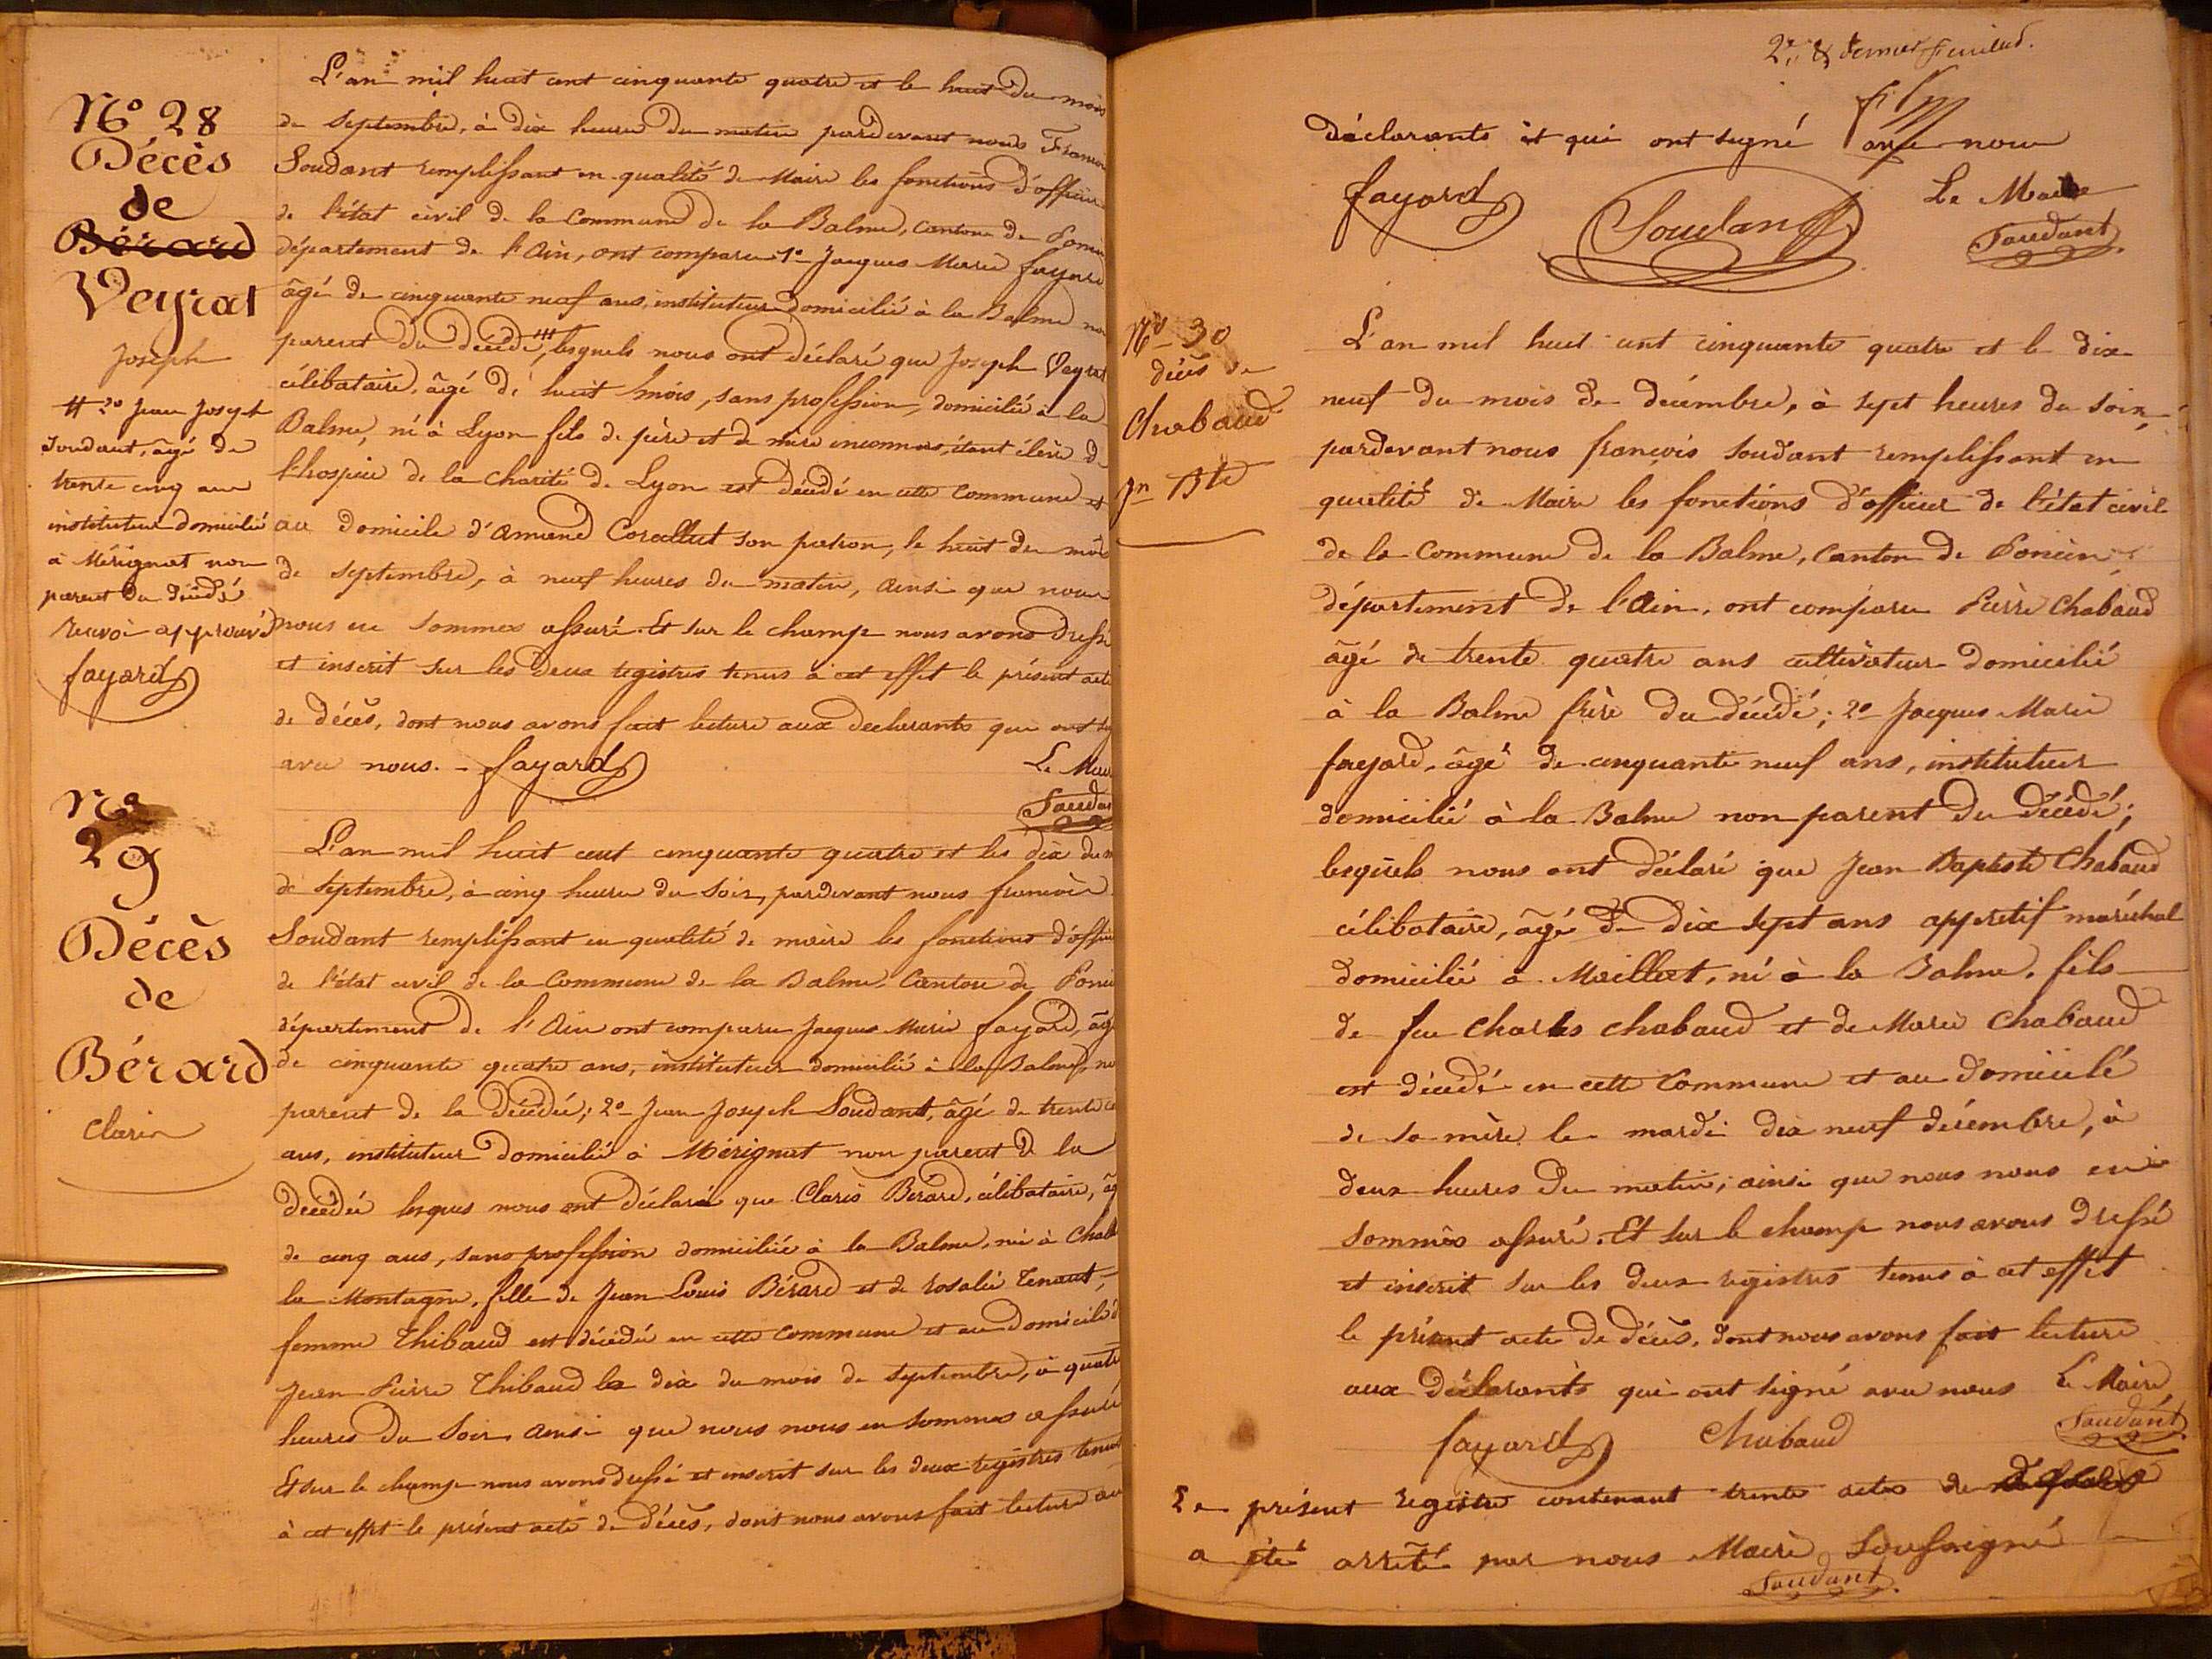 N° 28
Décès
de
Bérard
Veyrat
Joseph
# 2° Jean Joseph
Soudant, âgé de
trente cinq ans
instituteur domicilié
à Mérignat non
parent du décédé
renvoi approuvé
fayard
L'an mil huit cent cinquante quatre et le huit du mois
de Septembre, à dix heures du matin pardevant nous
Soudant remplissant en qualité de Maire les fonctions d'officier
de l'état civil de la Commune de la Balme, Canton de
département de l'Ain, ont comparu 1° Jacques Marie fayard
âgé de cinquante neuf ans, instituteur domicilié à la Balme
parent du décédé #, lesquels nous ont déclaré que Joseph Veyrat
célibataire, âgé de huit mois, sans profession, domicilié à la
Balme, né à Lyon fils de père et de mère inconnus, étant élève de
l'hospice de la Charité de Lyon est décédé en cette Commune et
au domicile d'Amand son patron, le huit du mois
de septembre, à neuf heures du matin, ainsi que nous
nous en sommes assuré. Et sur le champ nous avons dressé
et inscrit sur les deux registres tenus à cet effet le présent acte
de décès, dont nous avons fait lecture aux declarants qui ont
avec nous. - fayard
Le Maire
Soudant
N°
29
Décès
de
Bérard
Claris
L'an mil huit cent cinquante quatre et les dix du
de septembre, à cinq heures du soir, pardevant nous françois
Soudant remplissant en qualité de maire les fonctions d'officier
de l'état civil de la Commune de la Balme, Canton de
département de l'Ain ont comparu Jacques Marie fayard, âgé
de cinquante quatre ans, instituteur domicilié à la Balme, non
parent de la décédée; 2° Jean Joseph Soudant, âgé de trente
ans, instituteur domicilié à Mérignat non parent de la
décédée lesques nous ont déclaré que Claris Bérard, célibataire, âgé
de cinq ans, sans profession domiciliée à la Balme, né à
la Montagne, fille de Jean Louis Bérard et de rosalie Tenant,
femme Thibaud est décédée en cette commune et au domicile
Jean Pierre Thibaud le dix du mois de septembre, à quatre
heures du Soir ainsi que nous nous en sommes assuré
Et sur le champ nous avons dressé et inscrit sur les deux registres tenus
à cet effet le présent acte de décès, dont nous avons fait lecture aux
2e & dernier feuillet.
déclarants et qui ont signé avec nous
fayard Soudant Le Maire
Soudant
N° 30
décès de
Chabaud
Jn Bte
L'an mil huit cent cinquante quatre et le dix
neuf du mois de décembre, à sept heures du soir,
pardevant nous françois Soudant remplissant en
qualité de Maire les fonctions d'officier de l'état civil
de la Commune de la Balme, Canton de Poncin
département de l'Ain, ont comparu Pierre Chabaud
âgé de trente quatre ans cultivateur domicilié
à la Balme frère du décédé; 2° Jacques Marie
fayard, âgé de cinquante neuf ans, instituteur
domicilié à la Balme non parent du décédé;
lesquels nous ont déclaré que Jean Baptiste Chabaud
célibataire, âgé de dix sept ans appretif maréchal
domicilié à Maillat, né à la Balme, fils
de feu Charles Chabaud et de Marie Chabaud
est décédé en cette Commune et au domicile
de sa mère le mardi dix neuf décembre, à
deux heures du matin; ainsi que nous nous en
sommes assuré. Et sur le champ nous avons dressé
et inscrit sur les deux registres tenus à cet effet
le présent acte de décès, dont nous avons fait lecture
aux déclarants qui ont signé avec nous Le Maire
fayard Chabaud Soudant
Le présent registre contenant trente actes de
a été arrêté par nous Maire Soussigné
Soudant